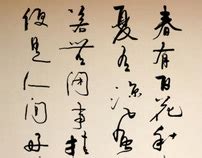 春有百花秋
夏有凉风
若无闲事挂
便是人间好